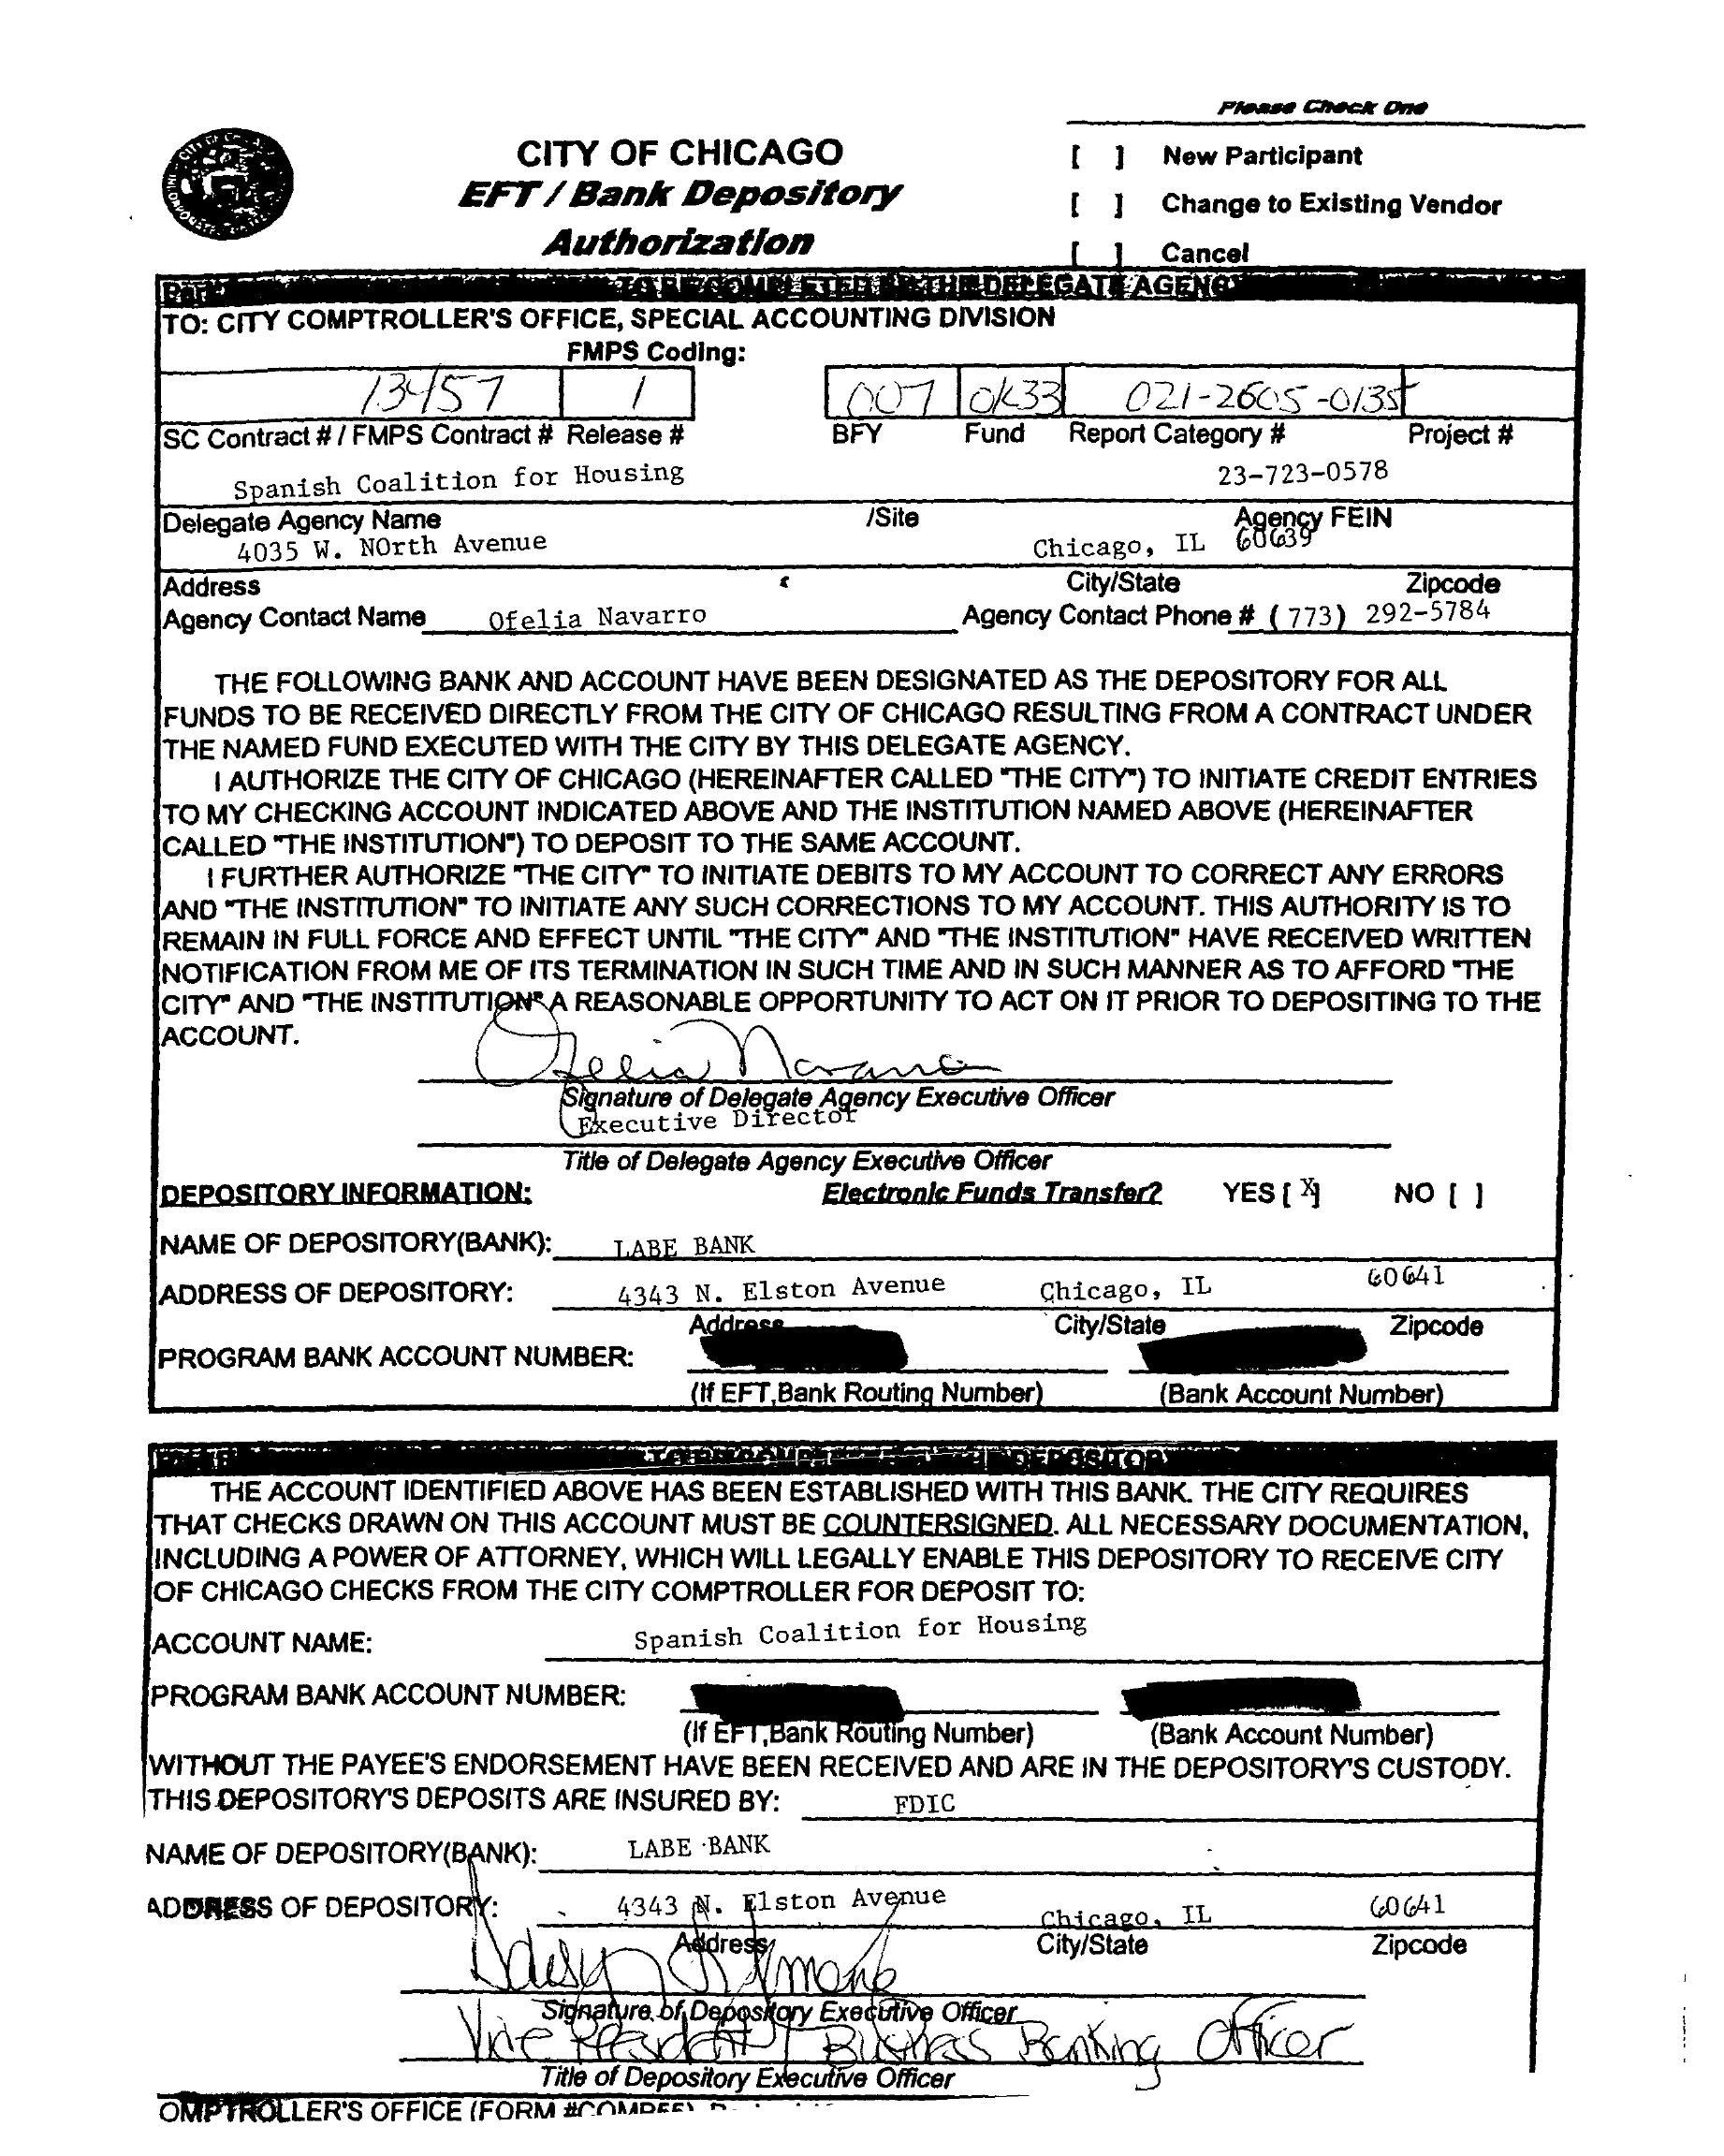 Please Check One
CITY OF CHICAGO
EFT / Bank Depository
Authorization
[ ] New Participant
[ ] Change to Existing Vendor
[ ] Cancel
TO BE COMPLETED BY THE DELEGATE AGENCY
TO: CITY COMPTROLLER'S OFFICE, SPECIAL ACCOUNTING DIVISION
FMPS Coding:
13457 1 007 0K33 021-2605-0135
SC Contract # / FMPS Contract # Release # BFY Fund Report Category # Project #
Spanish Coalition for Housing 23-723-0578
Delegate Agency Name /Site Agency FEIN
4035 W. NOrth Avenue Chicago, IL 60639
Address City/State Zipcode
Agency Contact Name Ofelia Navarro Agency Contact Phone # (773) 292-5784
THE FOLLOWING BANK AND ACCOUNT HAVE BEEN DESIGNATED AS THE DEPOSITORY FOR ALL
FUNDS TO BE RECEIVED DIRECTLY FROM THE CITY OF CHICAGO RESULTING FROM A CONTRACT UNDER
THE NAMED FUND EXECUTED WITH THE CITY BY THIS DELEGATE AGENCY.
I AUTHORIZE THE CITY OF CHICAGO (HEREINAFTER CALLED "THE CITY") TO INITIATE CREDIT ENTRIES
TO MY CHECKING ACCOUNT INDICATED ABOVE AND THE INSTITUTION NAMED ABOVE (HEREINAFTER
CALLED "THE INSTITUTION") TO DEPOSIT TO THE SAME ACCOUNT.
I FURTHER AUTHORIZE "THE CITY" TO INITIATE DEBITS TO MY ACCOUNT TO CORRECT ANY ERRORS
AND "THE INSTITUTION" TO INITIATE ANY SUCH CORRECTIONS TO MY ACCOUNT. THIS AUTHORITY IS TO
REMAIN IN FULL FORCE AND EFFECT UNTIL "THE CITY" AND "THE INSTITUTION" HAVE RECEIVED WRITTEN
NOTIFICATION FROM ME OF ITS TERMINATION IN SUCH TIME AND IN SUCH MANNER AS TO AFFORD "THE
CITY" AND "THE INSTITUTION" A REASONABLE OPPORTUNITY TO ACT ON IT PRIOR TO DEPOSITING TO THE
ACCOUNT.
Ofelia Navarro
Signature of Delegate Agency Executive Officer
Executive Director
Title of Delegate Agency Executive Officer
DEPOSITORY INFORMATION: Electronic Funds Transfer? YES [X] NO [ ]
NAME OF DEPOSITORY(BANK): LABE BANK
ADDRESS OF DEPOSITORY: 4343 N. Elston Avenue Chicago, IL 60641
Address City/State Zipcode
PROGRAM BANK ACCOUNT NUMBER:
(If EFT,Bank Routing Number) (Bank Account Number)
THE ACCOUNT IDENTIFIED ABOVE HAS BEEN ESTABLISHED WITH THIS BANK. THE CITY REQUIRES
THAT CHECKS DRAWN ON THIS ACCOUNT MUST BE COUNTERSIGNED. ALL NECESSARY DOCUMENTATION,
INCLUDING A POWER OF ATTORNEY, WHICH WILL LEGALLY ENABLE THIS DEPOSITORY TO RECEIVE CITY
OF CHICAGO CHECKS FROM THE CITY COMPTROLLER FOR DEPOSIT TO:
ACCOUNT NAME: Spanish Coalition for Housing
PROGRAM BANK ACCOUNT NUMBER:
(If EFT,Bank Routing Number) (Bank Account Number)
WITHOUT THE PAYEE'S ENDORSEMENT HAVE BEEN RECEIVED AND ARE IN THE DEPOSITORY'S CUSTODY.
THIS DEPOSITORY'S DEPOSITS ARE INSURED BY: FDIC
NAME OF DEPOSITORY(BANK): LABE BANK
ADDRESS OF DEPOSITORY: 4343 N. Elston Avenue Chicago, IL 60641
Address City/State Zipcode
Signature of Depository Executive Officer
Vice President / Business Banking Officer
Title of Depository Executive Officer
OMPTROLLER'S OFFICE (FORM